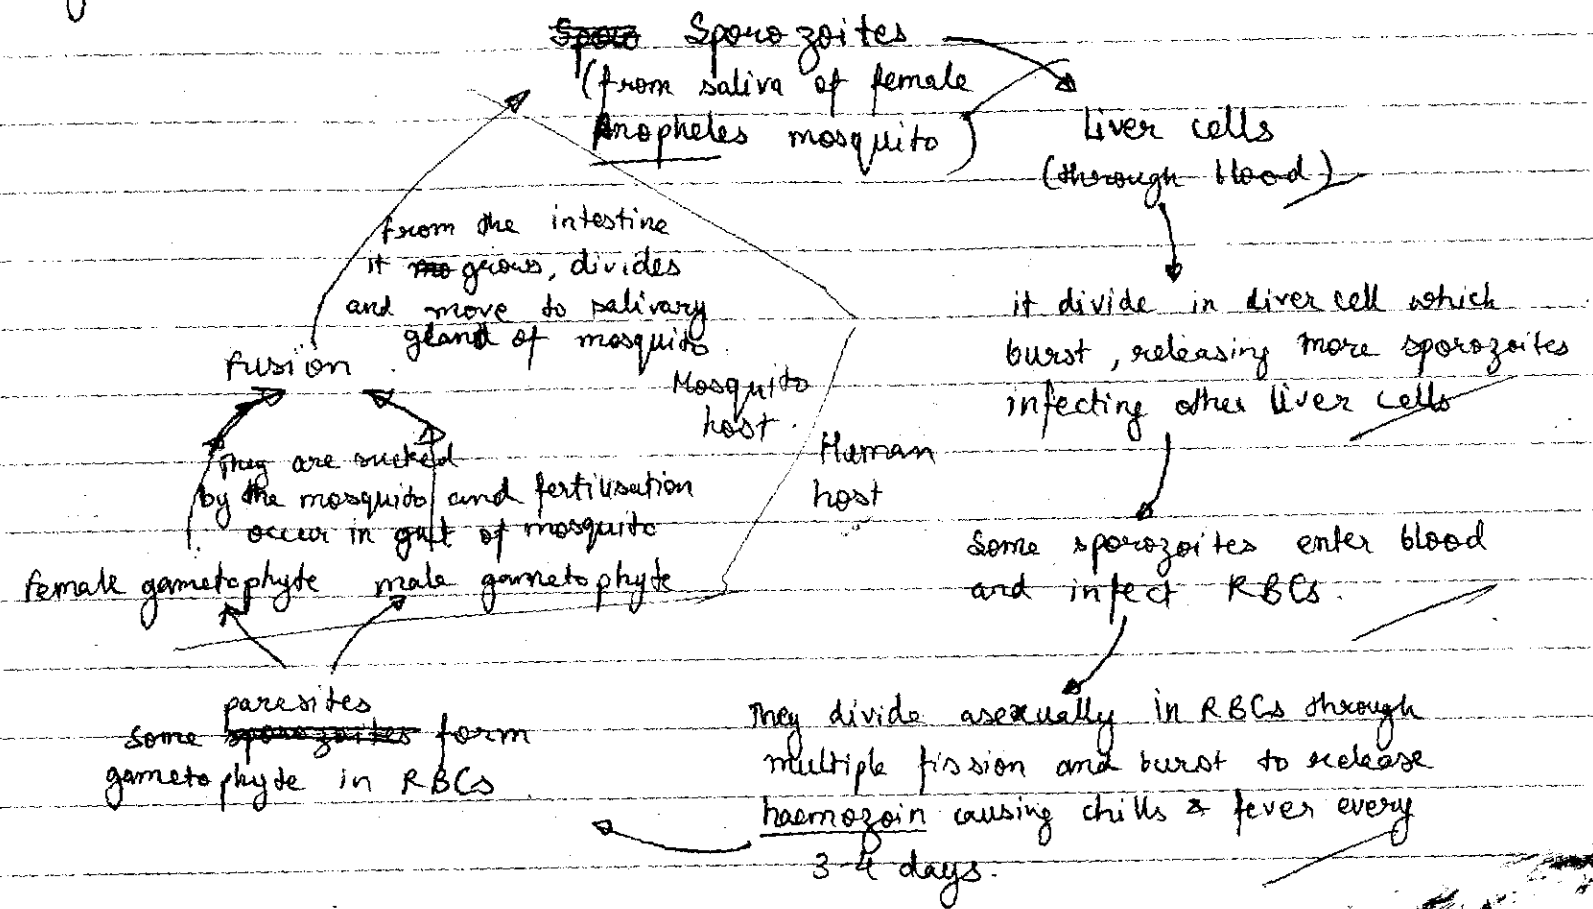 Sporo Sporozoites
(from saliva of female
Anopheles mosquito)
Liver cells
(through blood)
it divide in liver cell which
burst, releasing more sporozoites
infecting other liver cells
Some sporozoites enter blood
and infect RBCs.
They divide asexually in RBCs through
multiple fission and burst to release
haemozoin causing chills & fever every
3-4 days.
parasites
some sporozoites form
gametophyte in RBCs
female gametophyte male gametophyte
They are sucked
by the mosquito and fertilisation
occur in gut of mosquito
fusion
from the intestine
it mo grows, divides
and move to salivary
gland of mosquito.
Mosquito
host.
Human
host